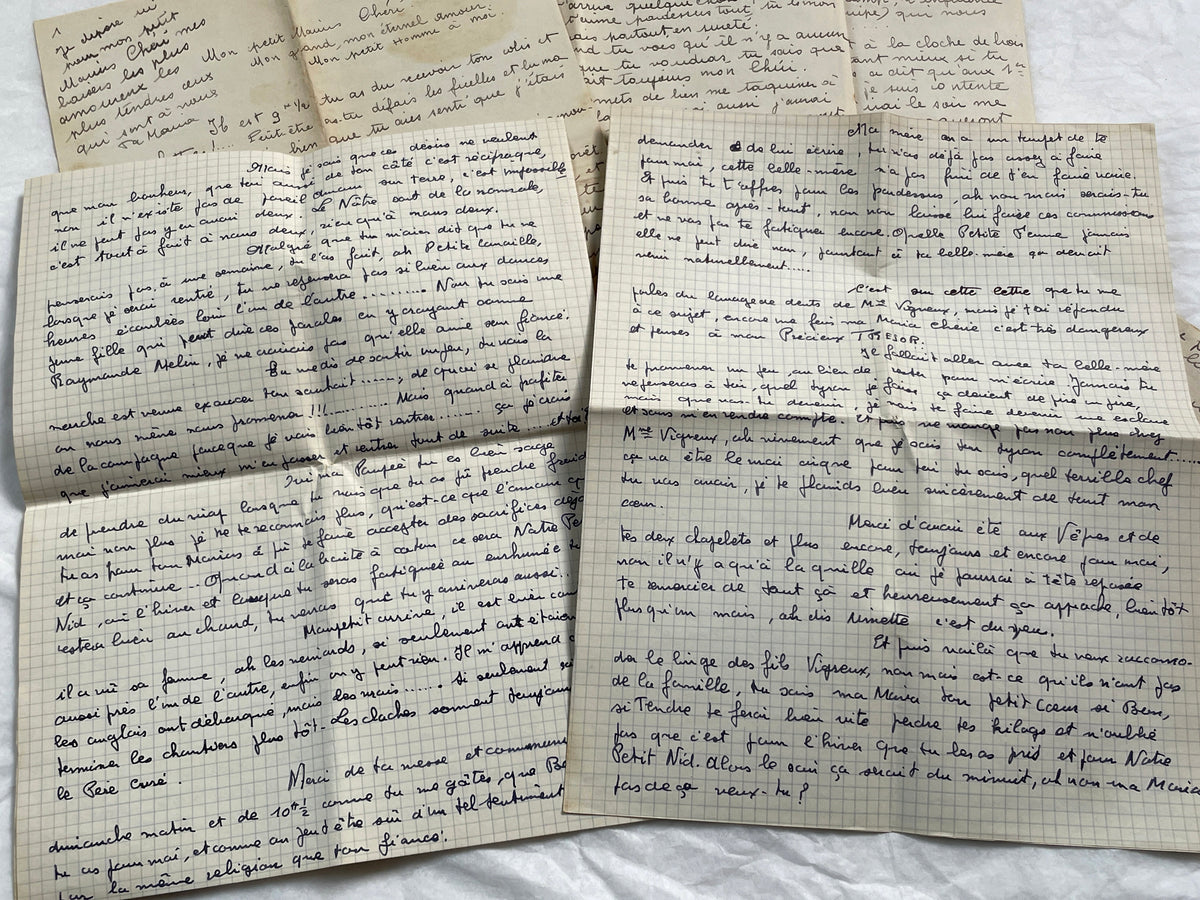 1
Je dépose ici
pour mon petit
Marius Chéri mes
baisers les plus
amoureux les
plus tendres deux
qui sont à nous
Ta Maria
Mon petit Marius Chéri.
Mon grand, mon éternel amour.
Mon petit Homme à moi.
Il est 9 H 1/2
tu as dû recevoir ton colis et
as-tu défais les ficelles et
Peut-être
bien que tu aies senti que j'étais
arrive quelque chose
t'aime pardessus tout,
mais partout, en sureté.
quand tu vois qu'il n'y a aucun
que tu voudras, tu sais que
fait toujours mon Chéri.
mets de bien me taquiner à
aussi j'aurai
qui nous
à la cloche de bois
tant mieux si tu
a dit qu'aux 1ers
je suis contente
le soir me
Mais je sais que ces désirs ne veulent
que mon bonheur, que toi aussi de ton côté c'est réciproque,
non il n'existe pas de pareil amour sur terre, c'est impossible
il ne peut pas y en avoir deux. Le Nôtre sort de la normale,
c'est tout à fait à nous deux, rien qu'à nous deux.
Malgré que tu m'aies dit que tu ne
penserais pas à une semaine, tu l'as fait, ah Petite canaille,
lorsque je serai rentré, tu ne repenseras pas si bien aux douces
heures écoulées loin l'un de l'autre.......... Non tu sais une
jeune fille qui peut dire ces paroles en y croyant comme
Raymonde Melin, je ne croirais pas qu'elle aime son fiancé.
Tu me dis de sortir un peu, tu vois la
perche est venue exaucer ton souhait......, de quoi se plaindre
on nous mène nous promener !!!.......... Mais quand à profiter
de la campagne parceque je vais bientôt rentrer........ ça je crois
que j'aimerai mieux m'en passer et rentrer tout de suite .... et toi
Oui ma Poupée tu es bien sage
de prendre du sirop lorsque tu vois que tu as pû prendre froid
moi non plus je ne te reconnais plus, qu'est-ce que l'amour que
tu as pour ton Marius à pû te faire accepter des sacrifices déjà
et ça continue... Quand à la boîte à coton ce sera Notre Petit
Nid, où l'hiver et lorsque tu seras fatiguée ou enrhumée tu
resteras bien au chaud, tu verras que tu y arriveras aussi..
Maupetit arrive, il est bien con
il a vû sa femme, ah les veinards, si seulement on étaient
aussi près l'un de l'autre, enfin on y peut rien. Il m'apprend
les anglais ont débarqué, mais les mois....... si seulement
terminer les chantiers plus tôt. Les cloches sonnent toujours
le Père Curé.
Merci de ta messe et communion
dimanche matin et de 10H 1/2 comme tu me gâtes, que
tu as pour moi, et comme on peut être sûr d'un tel sentiment
la même religion que ton fiancé!
Ma mère en a un toupet de te
demander de lui écrire, tu n'as déjà pas assez à faire
pour moi, cette belle-mère n'a pas fini de t'en faire voir.
Et puis tu t'offres pour les pardessus, ah non mais serais-tu
sa bonne après-tout, non non laisse lui faire ces commissions
et ne vas pas te fatiguer encore. Quelle Petite Femme jamais
elle ne peut dire non, pourtant à ta belle-mère ça devrait
venir naturellement.....
C'est sur cette lettre que tu me
parles du lavage de dents de Mme Vigreux, mais je t'ai répondu
à ce sujet, encore une fois ma Maria Chérie c'est très dangereux
et penses à mon Précieux TRESOR.
Il fallait aller avec ta belle-mère
te promener un peu, au lieu de rester pour m'écrire. Jamais tu
refuseras à toi, quel tyran je fais, ça devient de pire en pire,
mais que vas-tu devenir, je vais te faire devenir une esclave
et sans m'en rendre compte. Et puis ne mange pas non plus chez
Mme Vigreux, ah vivement que je sois ton tyran complètement.....
ça va être le moi cinque pour toi tu sais, quel terrible chef
tu vas avoir, je te plains bien sincèrement de tout mon
cœur.
Merci d'avoir été aux Vêpres et de
tes deux chapelets et plus encore, toujours et encore pour moi,
non il n'y a qu'à la quille où je pourrai à tête reposée
te remercier de tout çà et heureusement ça approche, bientôt
plus qu'un mois, ah dis Minette c'est du peu.
Et puis voilà que tu veux raccomo-
der le linge des fils Vigreux, non mais est-ce qu'ils n'ont pas
de la famille, tu sais ma Maria ton petit Cœur si Bon,
si Tendre te ferai bien vite perdre tes kilogs et n'oublie
pas que c'est pour l'hiver que tu les as pris et pour Notre
Petit Nid. Alors le soir ça serait du minuit, ah non ma Maria
pas de ça veux-tu ?